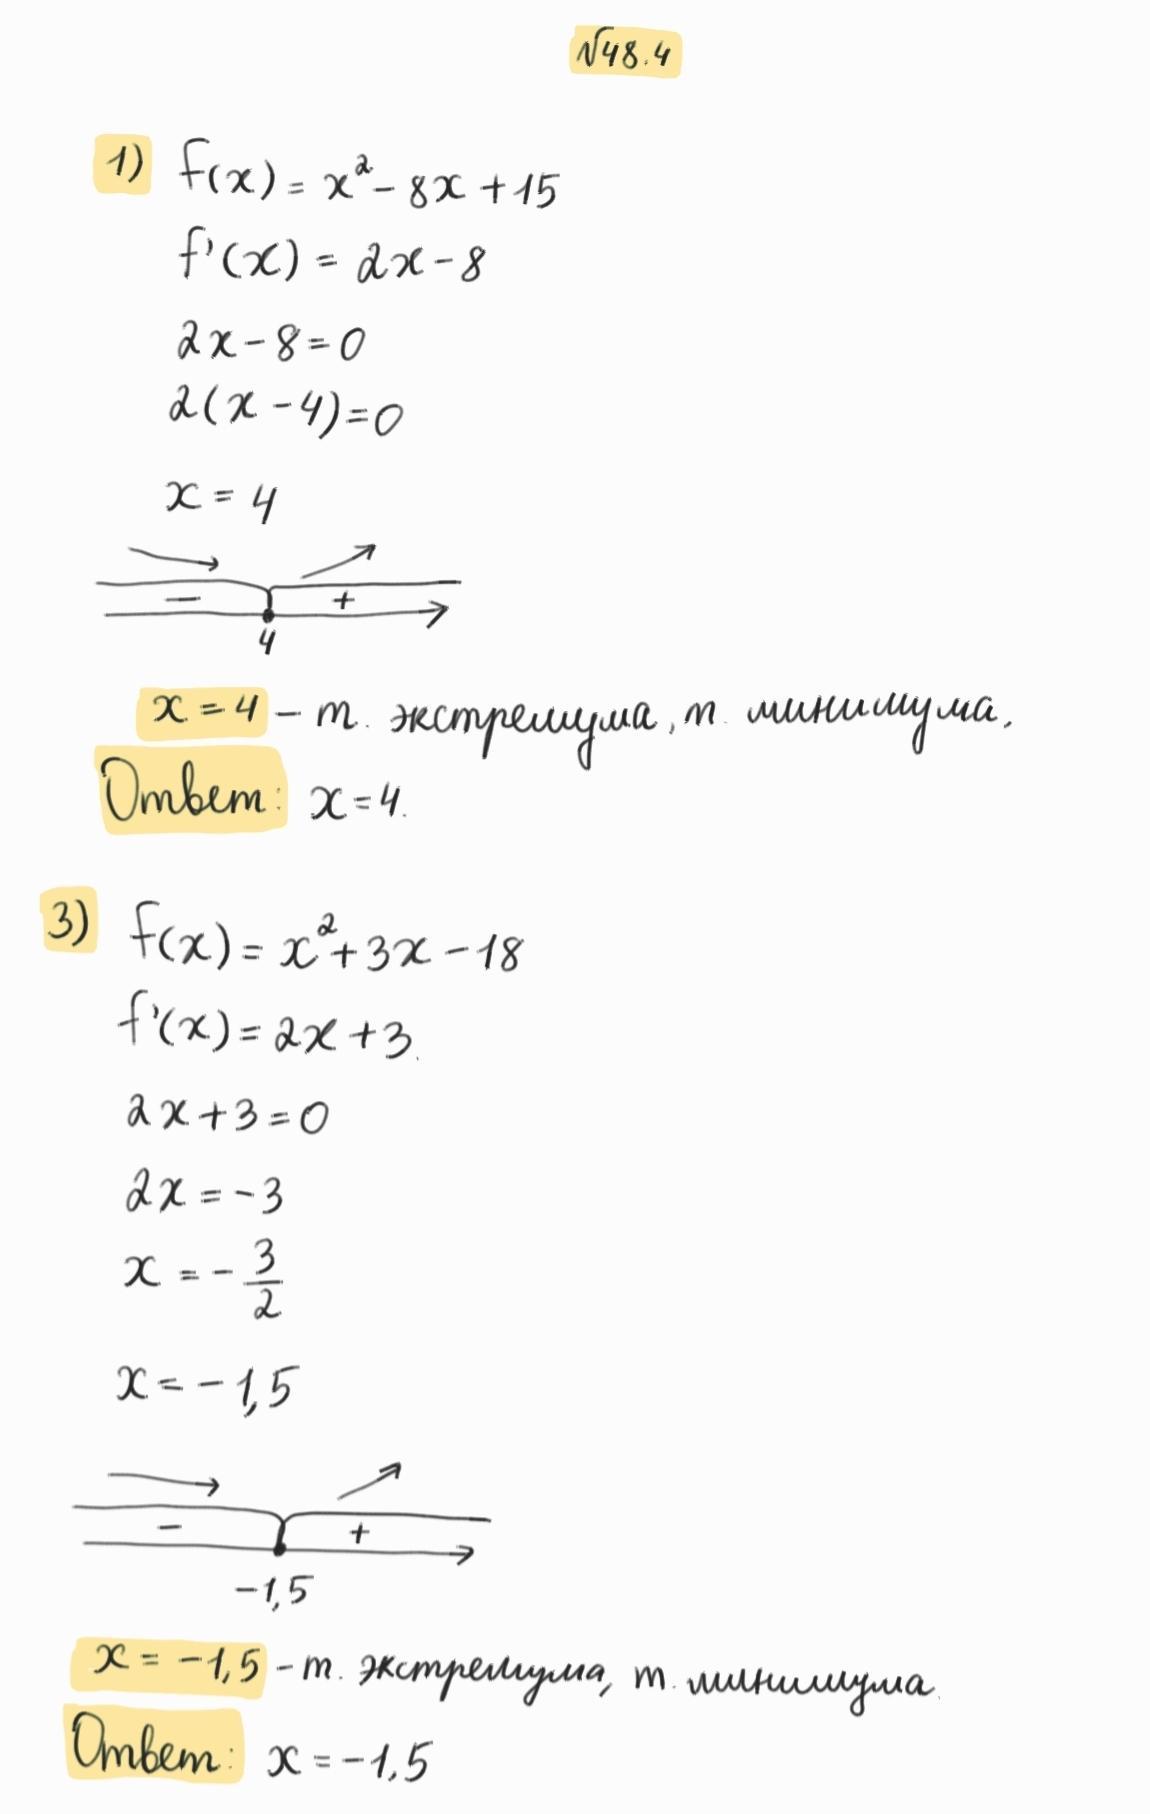 №48.4
1) f(x) = x² - 8x + 15
f'(x) = 2x - 8
2x - 8 = 0
2(x - 4) = 0
x = 4
- +
4
x = 4 - т. экстремума, т. минимума.
Ответ: x = 4.
3) f(x) = x² + 3x - 18
f'(x) = 2x + 3
2x + 3 = 0
2x = -3
x = - 3/2
x = -1,5
- +
-1,5
x = -1,5 - т. экстремума, т. минимума.
Ответ: x = -1,5